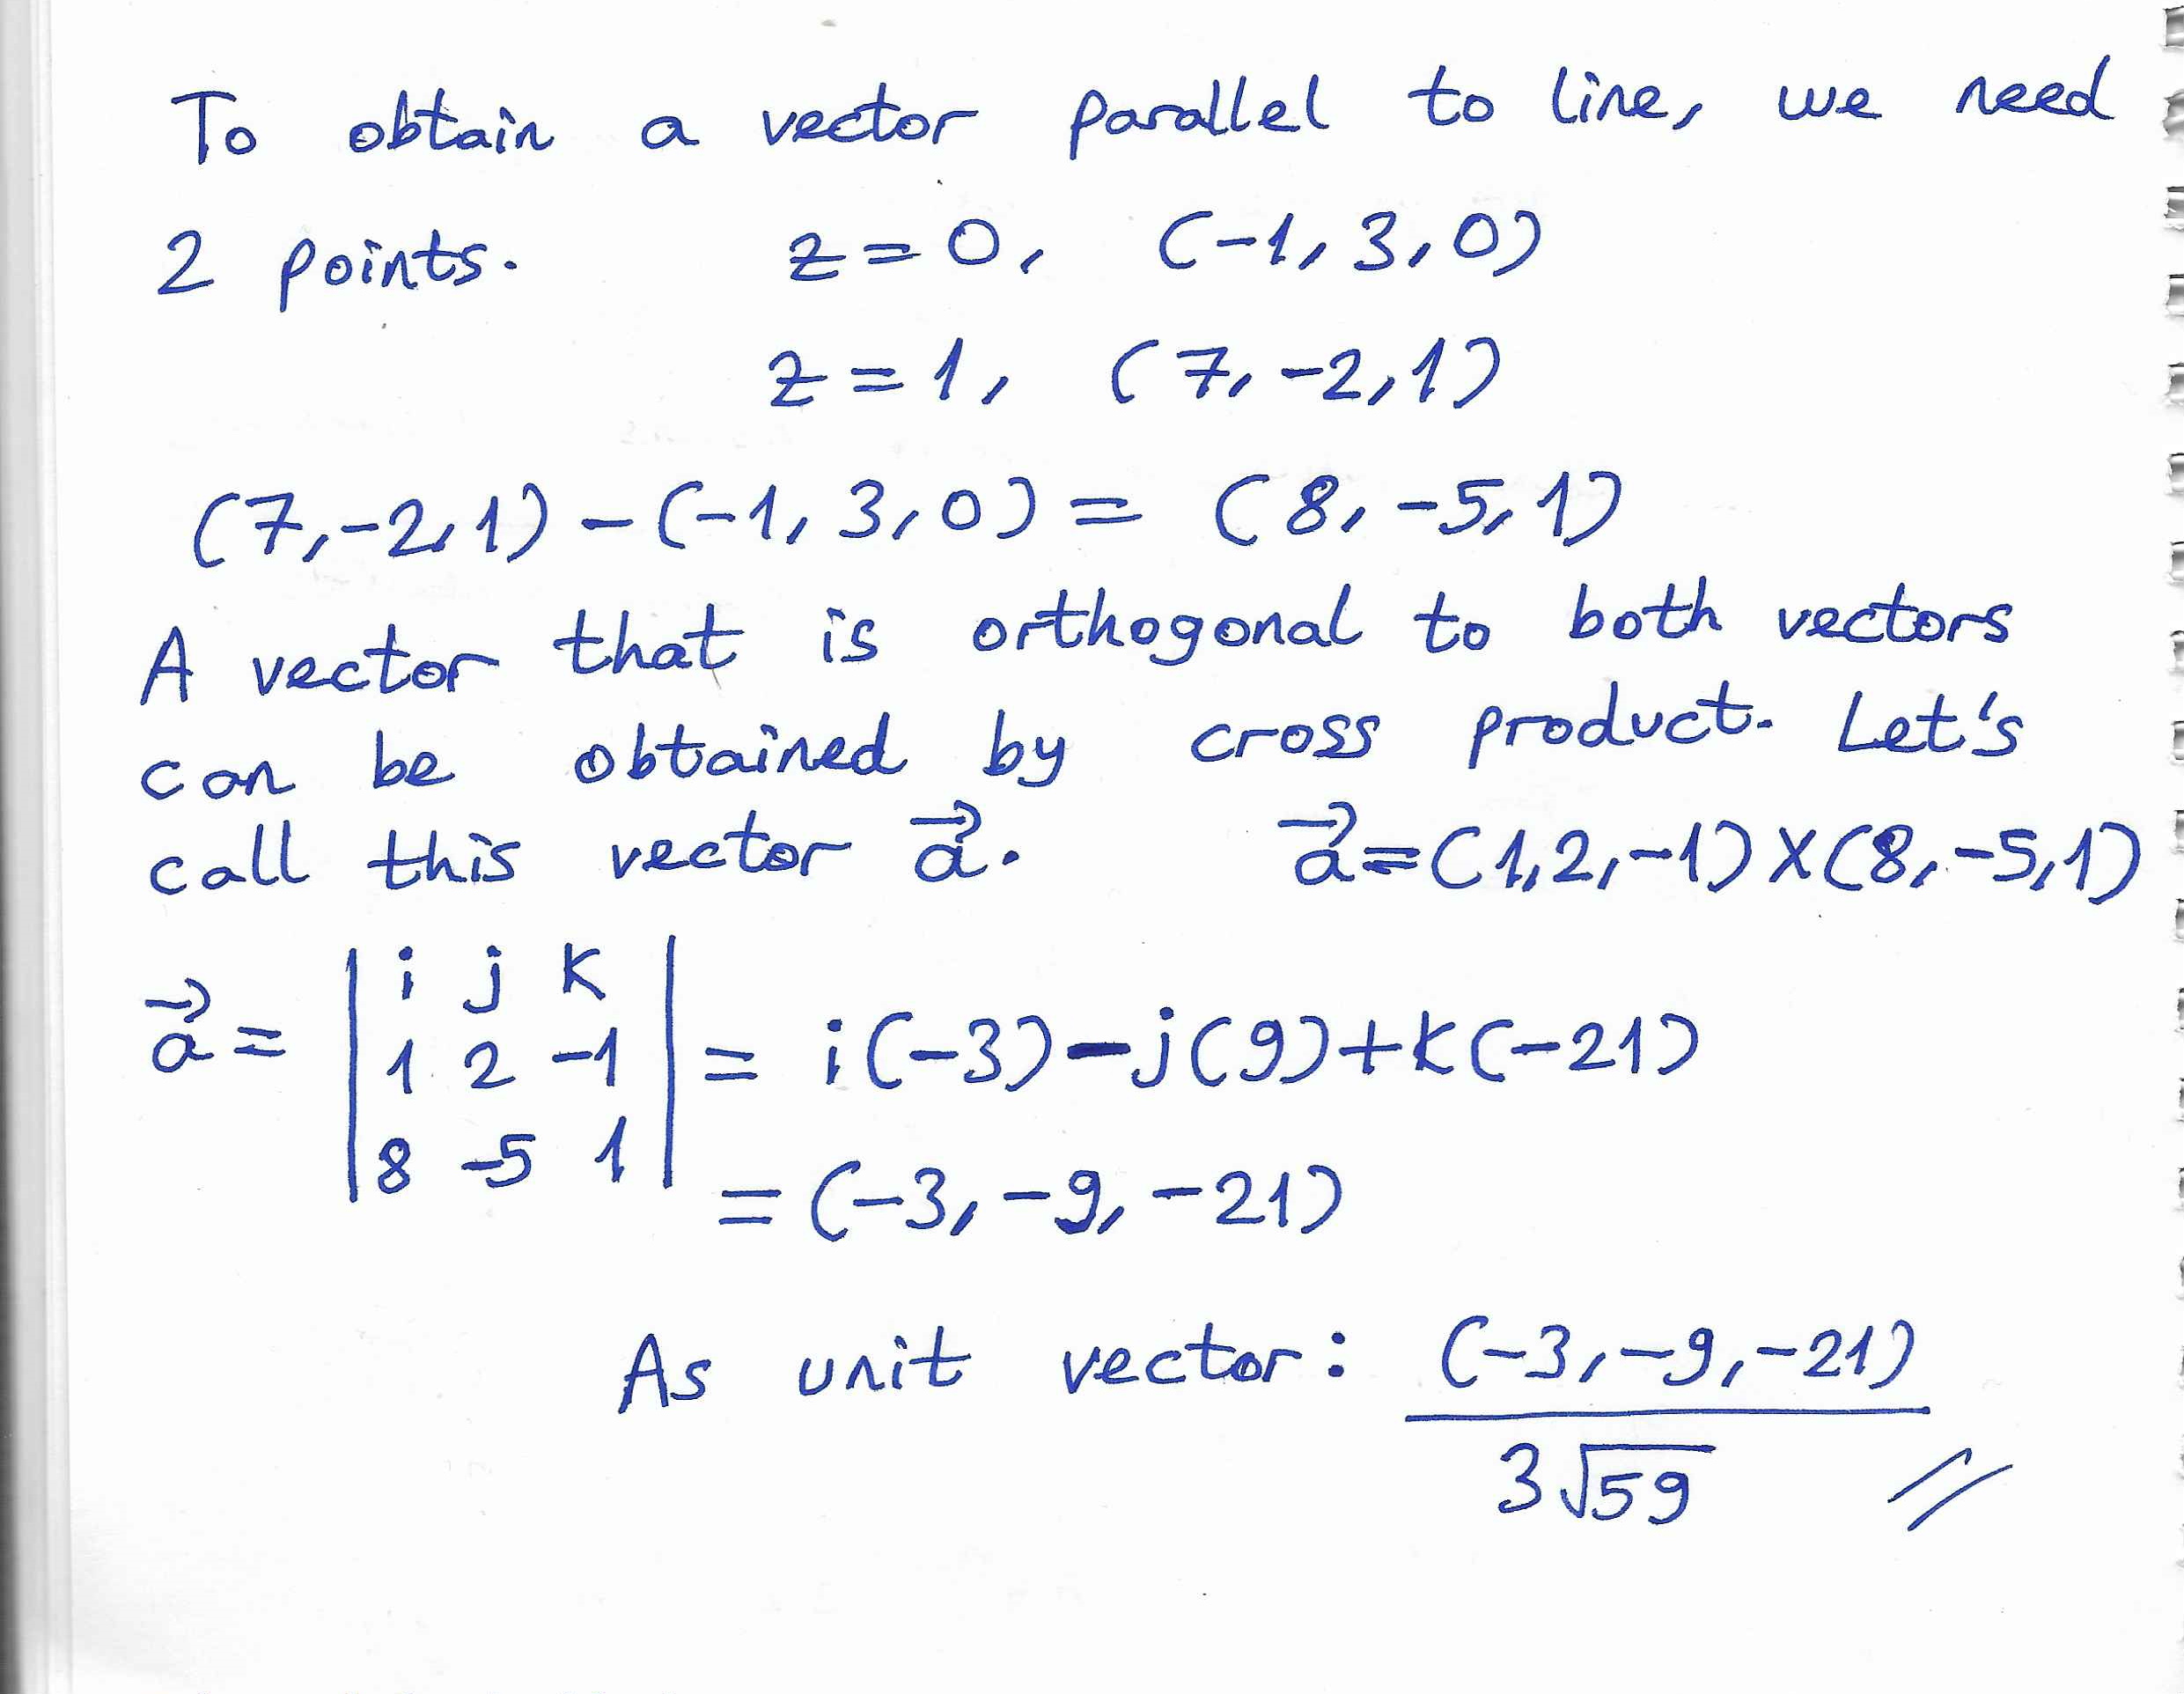 To obtain a vector parallel to line, we need
2 points. z=0, (-1,3,0)
z=1, (7,-2,1)
(7,-2,1)-(-1,3,0)=(8,-5,1)
A vector that is orthogonal to both vectors
can be obtained by cross product. Let's
call this vector a⃗. a⃗=(1,2,-1)×(8,-5,1)
a⃗ = | i j k ; 1 2 -1 ; 8 -5 1 | = i(-3)-j(9)+k(-21)
=(-3,-9,-21)
As unit vector: (-3,-9,-21)
3√59 //